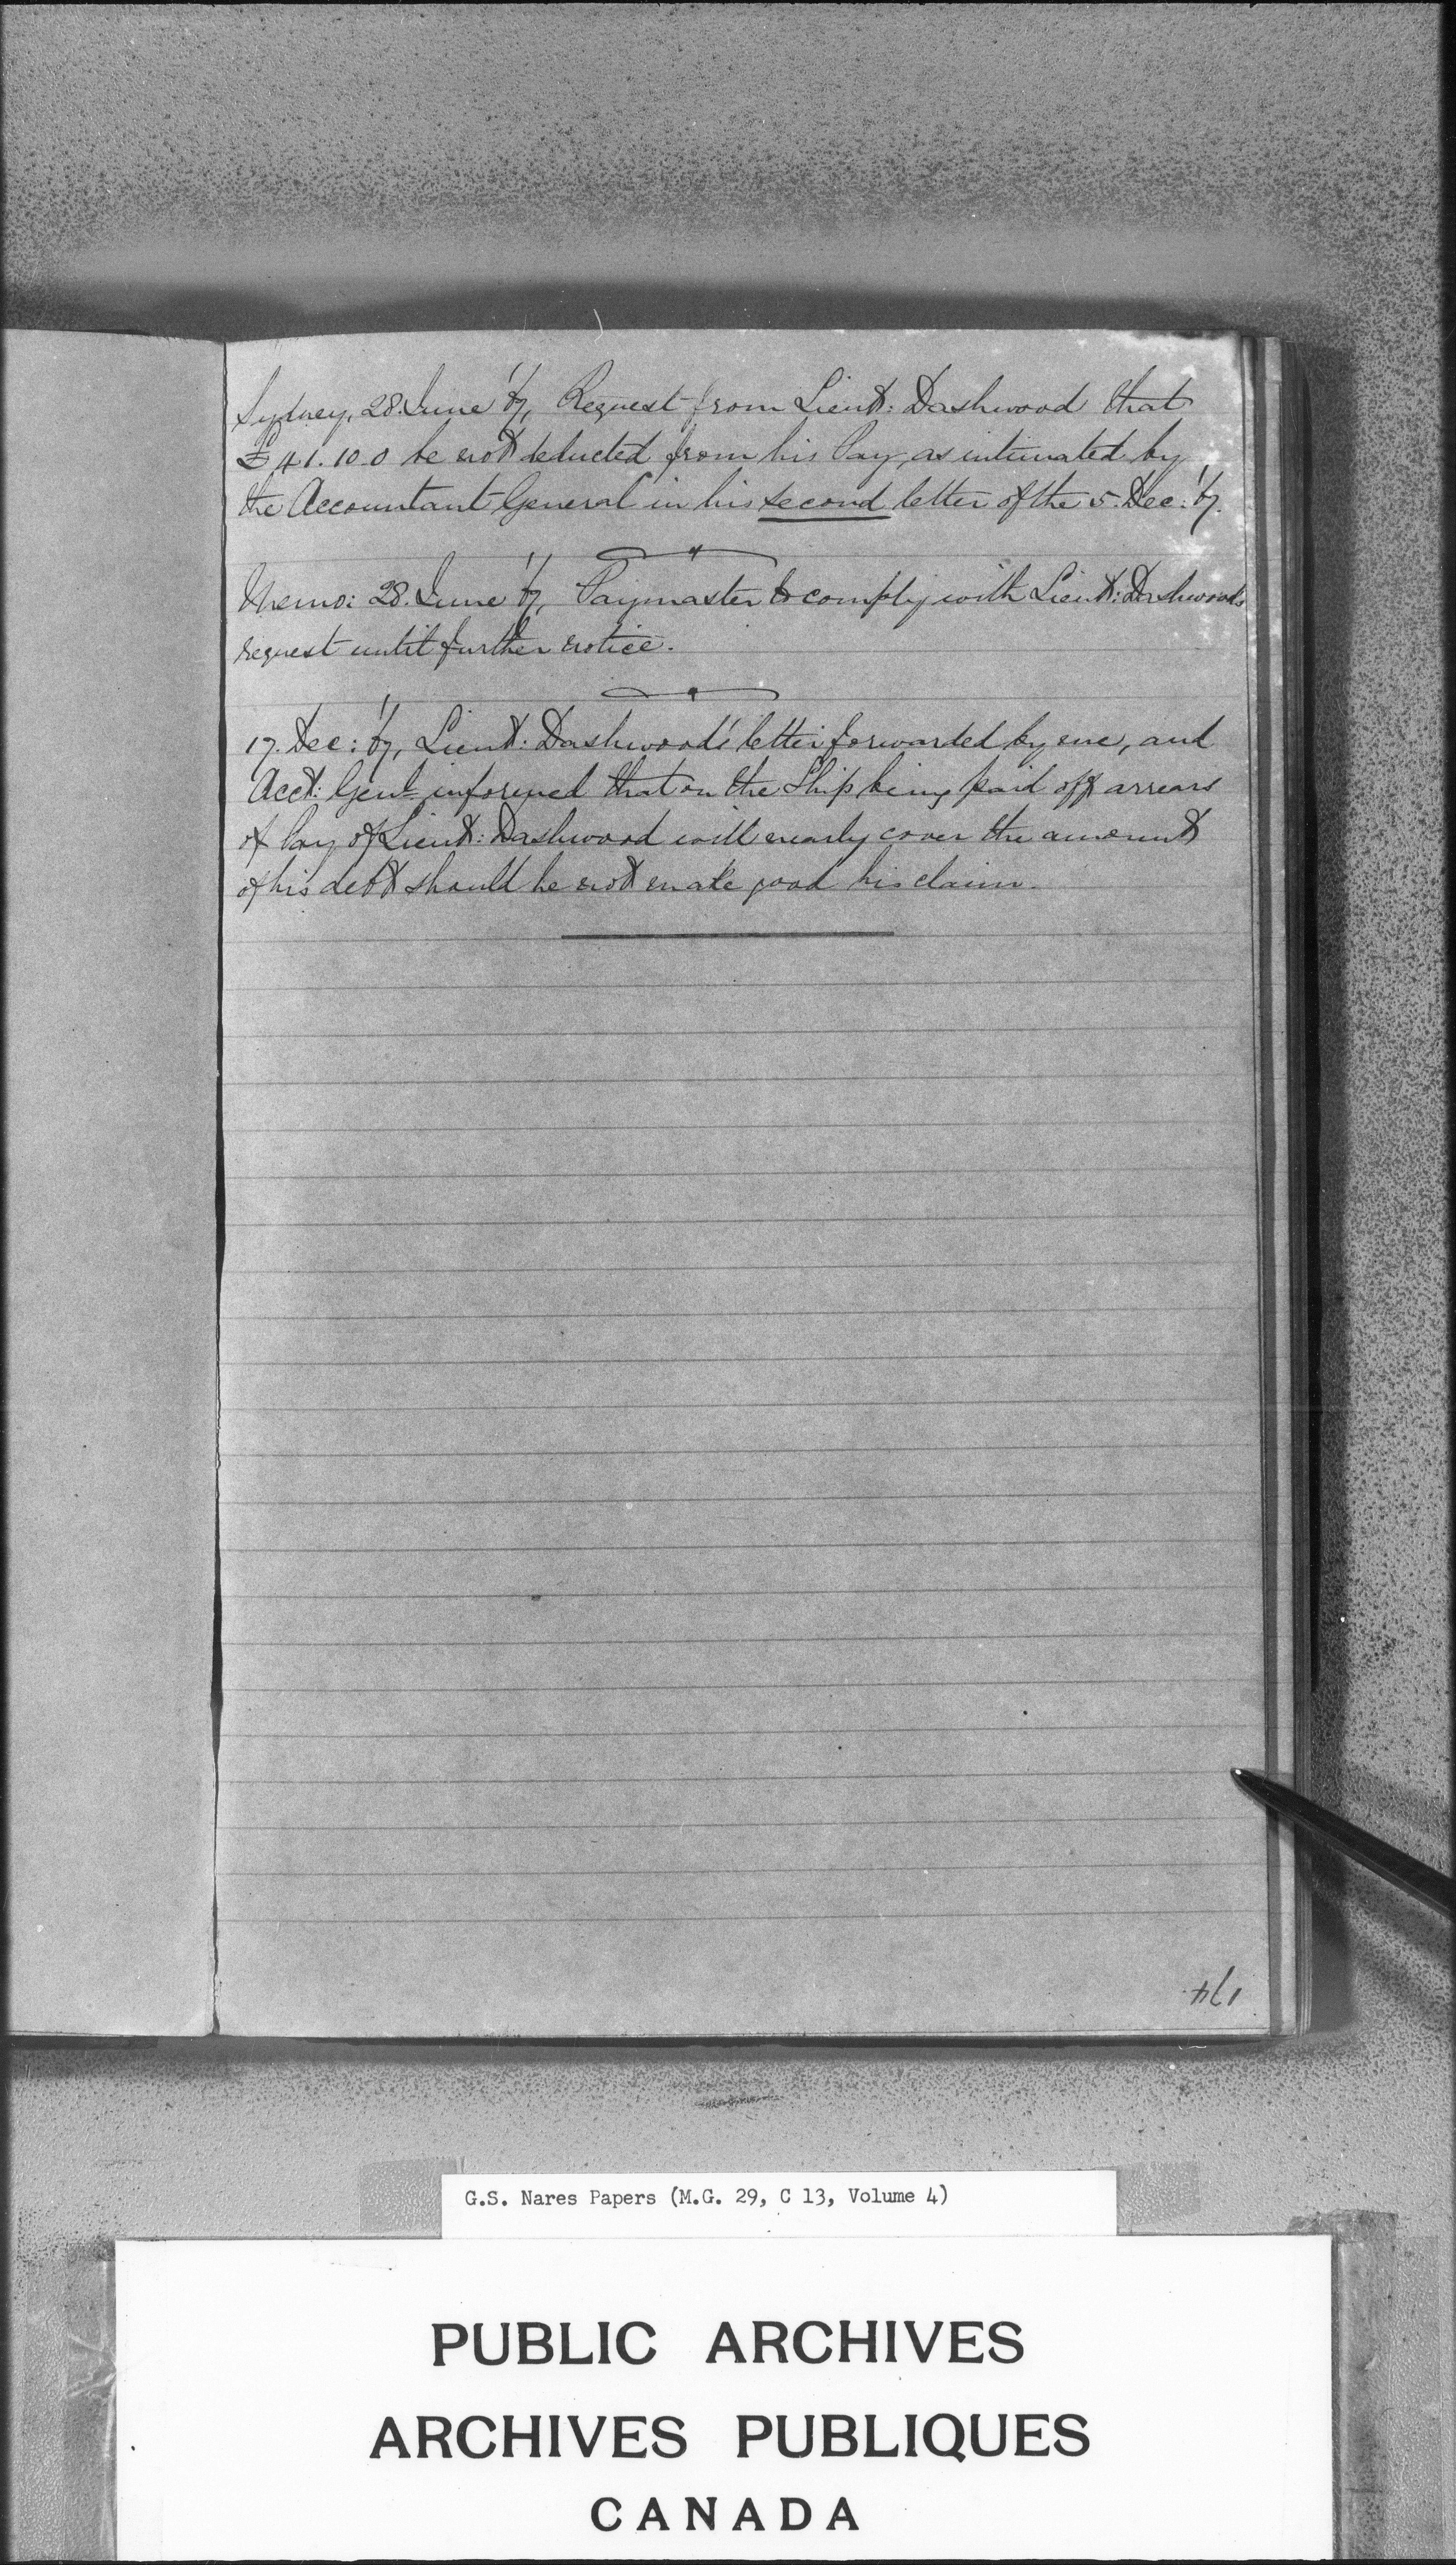 Sydney, 28. June '67, Request from Lieut: Dashwood that
£41.10.0 be not deducted from his Pay, as intimated by
the Accountant General in his second letter of the 5. Dec: '67.
Memo: 28. June '67, Paymaster to comply with Lieut: Dashwoods
request until further notice.
17. Dec: '67, Lieut: Dashwood's letter forwarded by me, and
Acct: Genl informed that on the Ship being paid off arrears
of Pay of Lieut: Dashwood will nearly cover the amount
of his debt should he not make good his claim.
174
G.S. Nares Papers (M.G. 29, C 13, Volume 4)
PUBLIC ARCHIVES
ARCHIVES PUBLIQUES
CANADA